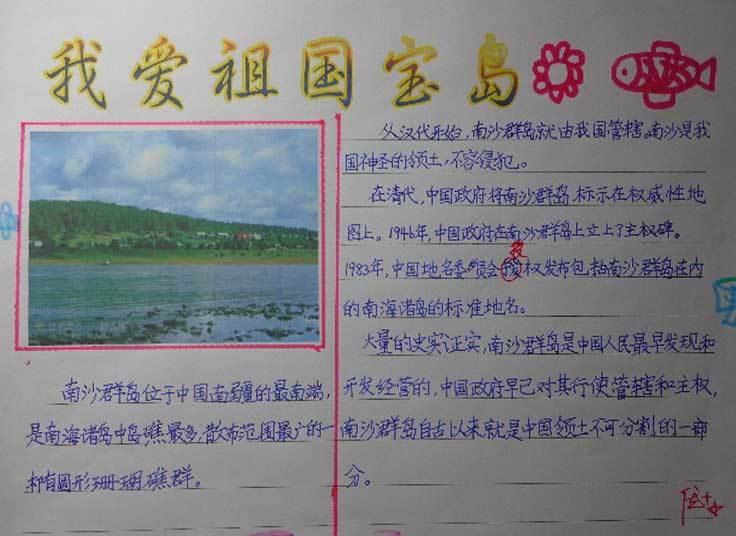 我爱祖国宝岛
南沙群岛位于中国南疆的最南端,
是南海诸岛中岛礁最多,散布范围最广的一
椭圆形珊瑚礁群。
从汉代开始,南沙群岛就由我国管辖。南沙是我
国神圣的领土,不容侵犯。
在清代,中国政府将南沙群岛标示在权威性地
图上。1946年,中国政府在南沙群岛上立上了主权碑。
授
1983年,中国地名委员会权发布包括南沙群岛在内
的南海诸岛的标准地名。
大量的史实证实,南沙群岛是中国人民最早发现和
开发经营的,中国政府早已对其行使管辖和主权,
南沙群岛自古以来就是中国领土不可分割的一部
分。
优+